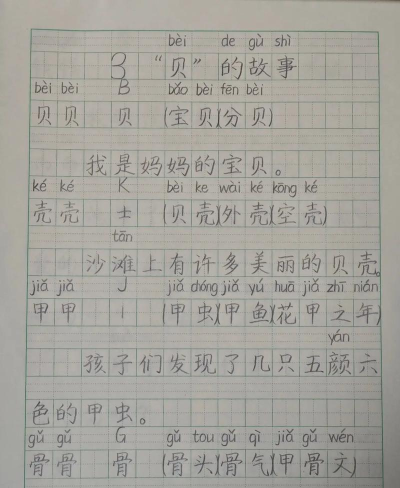 bèi de gù shì
3 “贝”的故事
bèi bèi B bǎo bèi fēn bèi
贝 贝 贝 (宝贝)(分贝)
我是妈妈的宝贝。
ké ké K bèi ke wài ké kōng ké
壳 壳 士 (贝壳)(外壳)(空壳)
tān
沙滩上有许多美丽的贝壳。
jiǎ jiǎ J jiǎ chóng jiǎ yú huā jiǎ zhī nián
甲 甲 丨 (甲虫)(甲鱼)(花甲之年)
yán
孩子们发现了几只五颜六
色的甲虫。
gǔ gǔ G gǔ tou gǔ qì jiǎ gǔ wén
骨 骨 骨 (骨头)(骨气)(甲骨文)